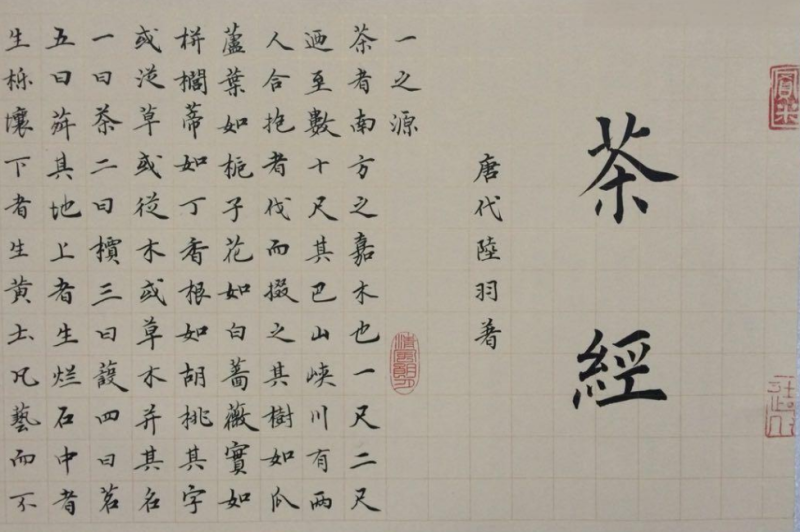 茶經
唐代陸羽著
一之源
茶者南方之嘉木也一尺二尺
迺至數十尺其巴山峽川有兩
人合抱者伐而掇之其樹如瓜
蘆葉如梔子花如白薔薇實如
栟櫚蒂如丁香根如胡桃其字
或從草或從木或草木并其名
一曰茶二曰檟三曰蔎四曰茗
五曰荈其地上者生烂石中者
生栎壤下者生黄土凡藝而不